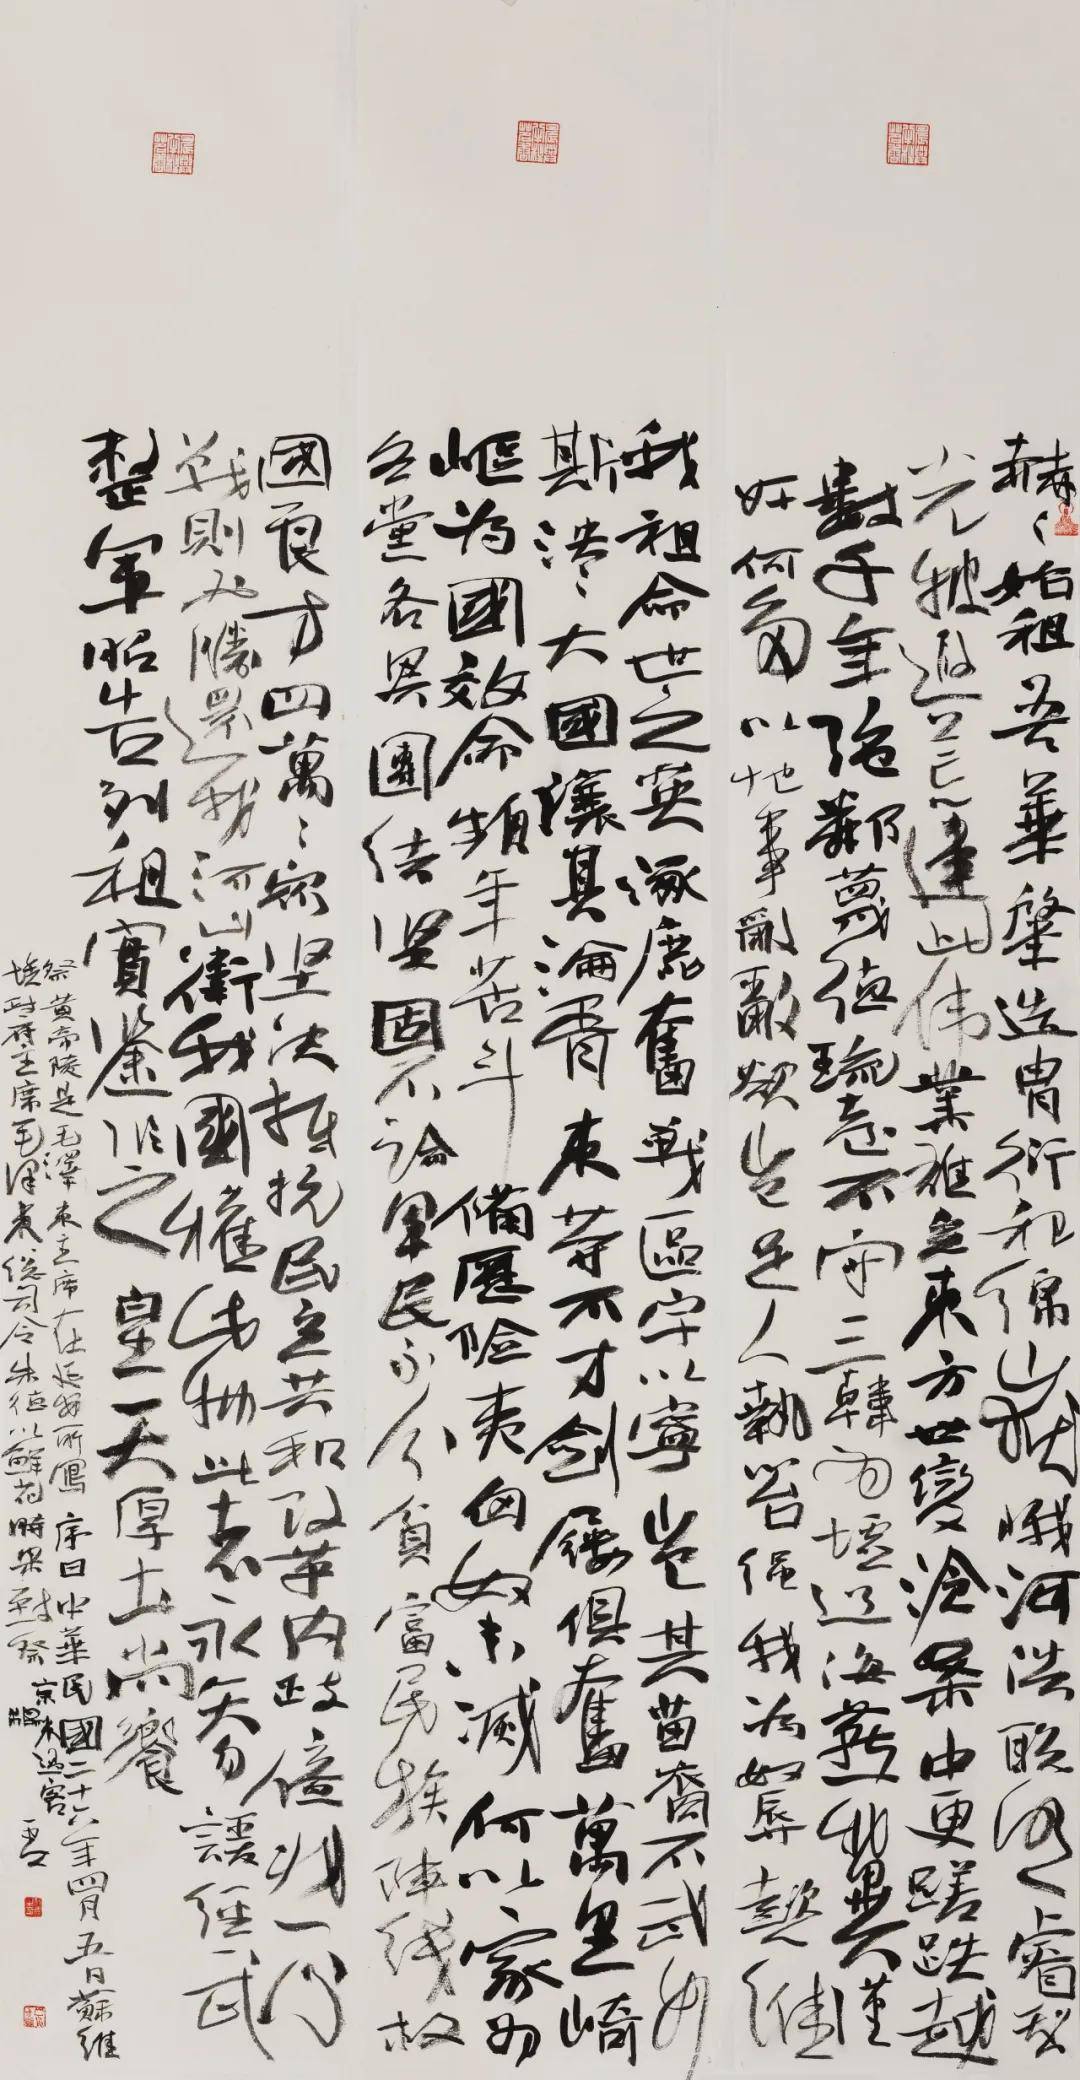 赫〻始祖吾華肇造胄衍祀绵岳峨河浩聪明睿智
光被遐荒建此伟業雄立東方世變沧桑中更蹉跌越
數千年强鄰蔑德琉臺不守三韓为墟辽海燕冀漢
奸何多以地事敵敵欲岂足人執笞绳我为奴辱懿维
我祖命世之英涿鹿奮戰區宇以寧岂其苗裔不武如
斯泱〻大國讓其淪胥東等不才劍屨俱奮萬里崎
岖为國效命頻年苦斗備歷险夷匈奴未滅何以家为
各黨各界團结坚固不论軍民不分貧富民族阵线救
國良方四萬〻众坚决抵抗民主共和改革内政億兆一心
戰則必勝還我河山衛我國權此物此志永矢勿諼經武
整軍昭告列祖實鑒临之皇天厚土尚饗
祭黄帝陵是毛澤東主席在延安所寫 序曰中華民國二十六年四月五日蘇維
埃政府主席毛泽東总司令朱德以鲜花時果致祭 京木過客